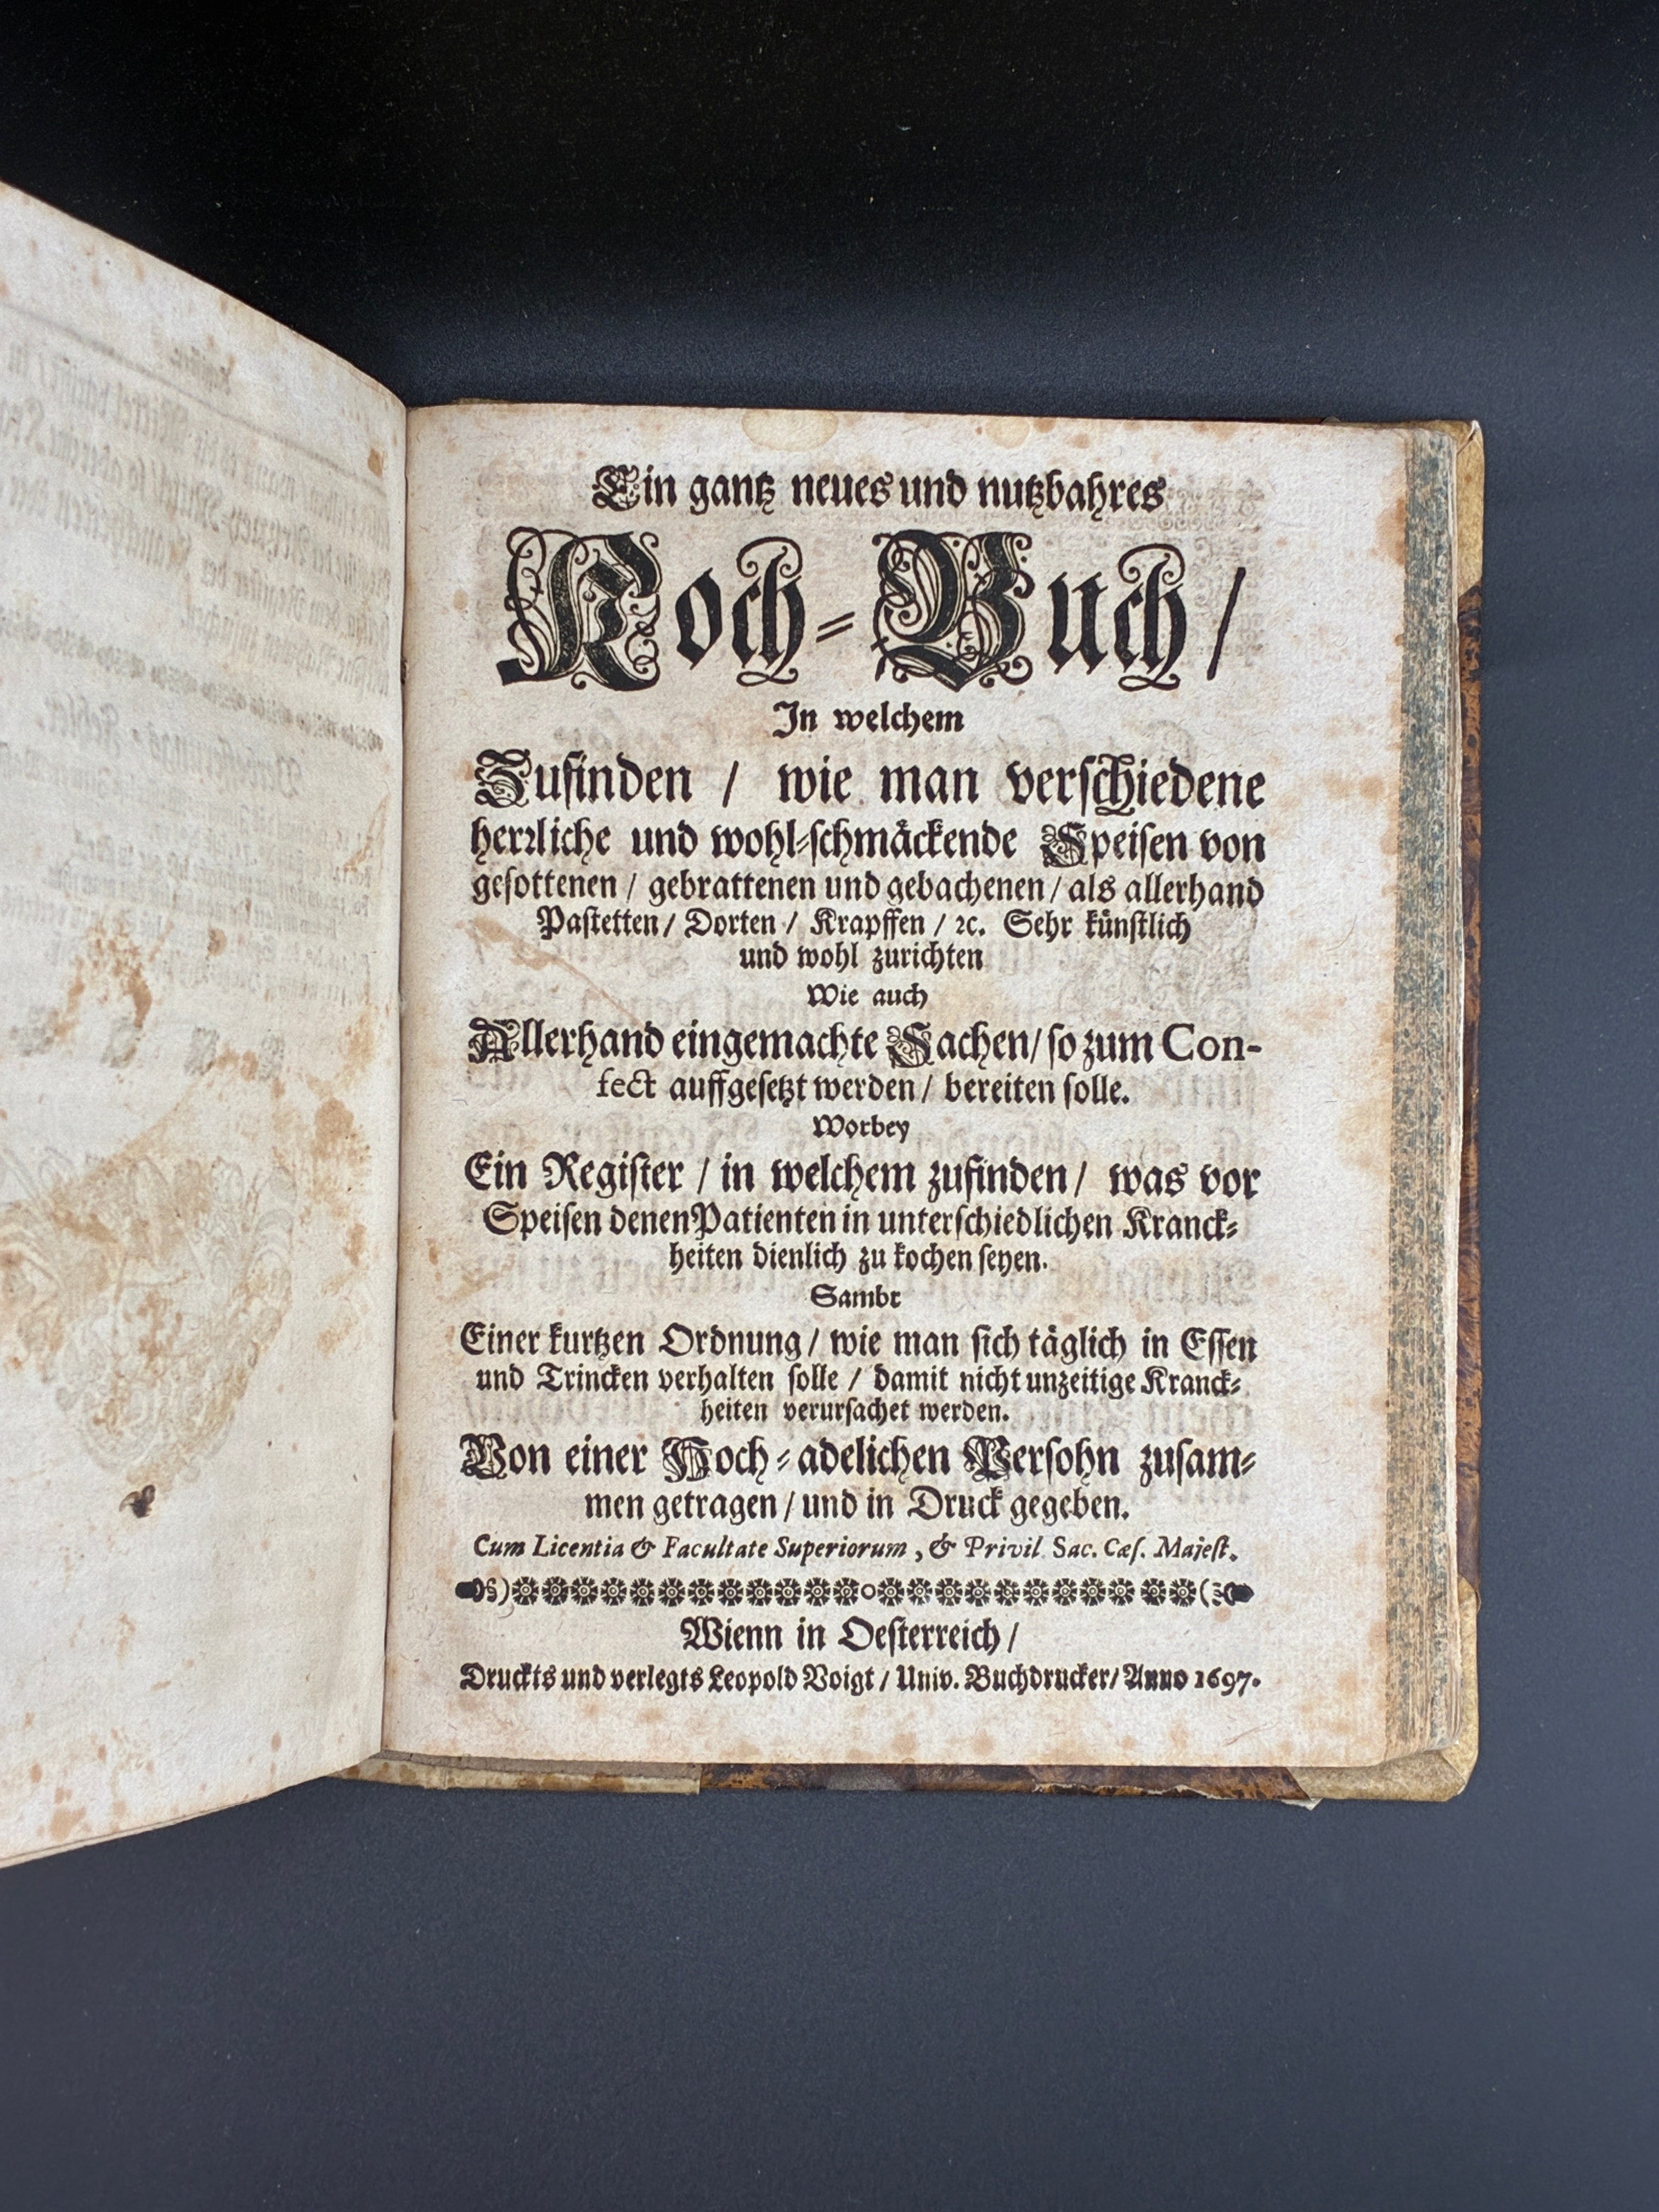 Ein gantz neues und nutzbahres
Koch-Buch /
In welchem
Zufinden / wie man verſchiedene
herꝛliche und wohl-ſchmäckende Speiſen von
geſottenen / gebrattenen und gebachenen / als allerhand
Paſtetten / Dorten / Krapffen / ꝛc. Sehr künſtlich
und wohl zurichten
Wie auch
Allerhand eingemachte Sachen / ſo zum Con-
fect auffgeſetzt werden / bereiten ſolle.
Worbey
Ein Regiſter / in welchem zufinden / was vor
Speiſen denen Patienten in unterſchiedlichen Kranck-
heiten dienlich zu kochen ſeyen.
Sambt
Einer kurtzen Ordnung / wie man ſich täglich in Eſſen
und Trincken verhalten ſolle / damit nicht unzeitige Kranck-
heiten verurſachet werden.
Von einer Hoch-adelichen Perſohn zuſam-
men getragen / und in Druck gegeben.
Cum Licentia & Facultate Superiorum, & Privil. Sac. Cæſ. Majeſt.
Wienn in Oeſterreich /
Druckts und verlegts Leopold Voigt / Univ. Buchdrucker / Anno 1697.